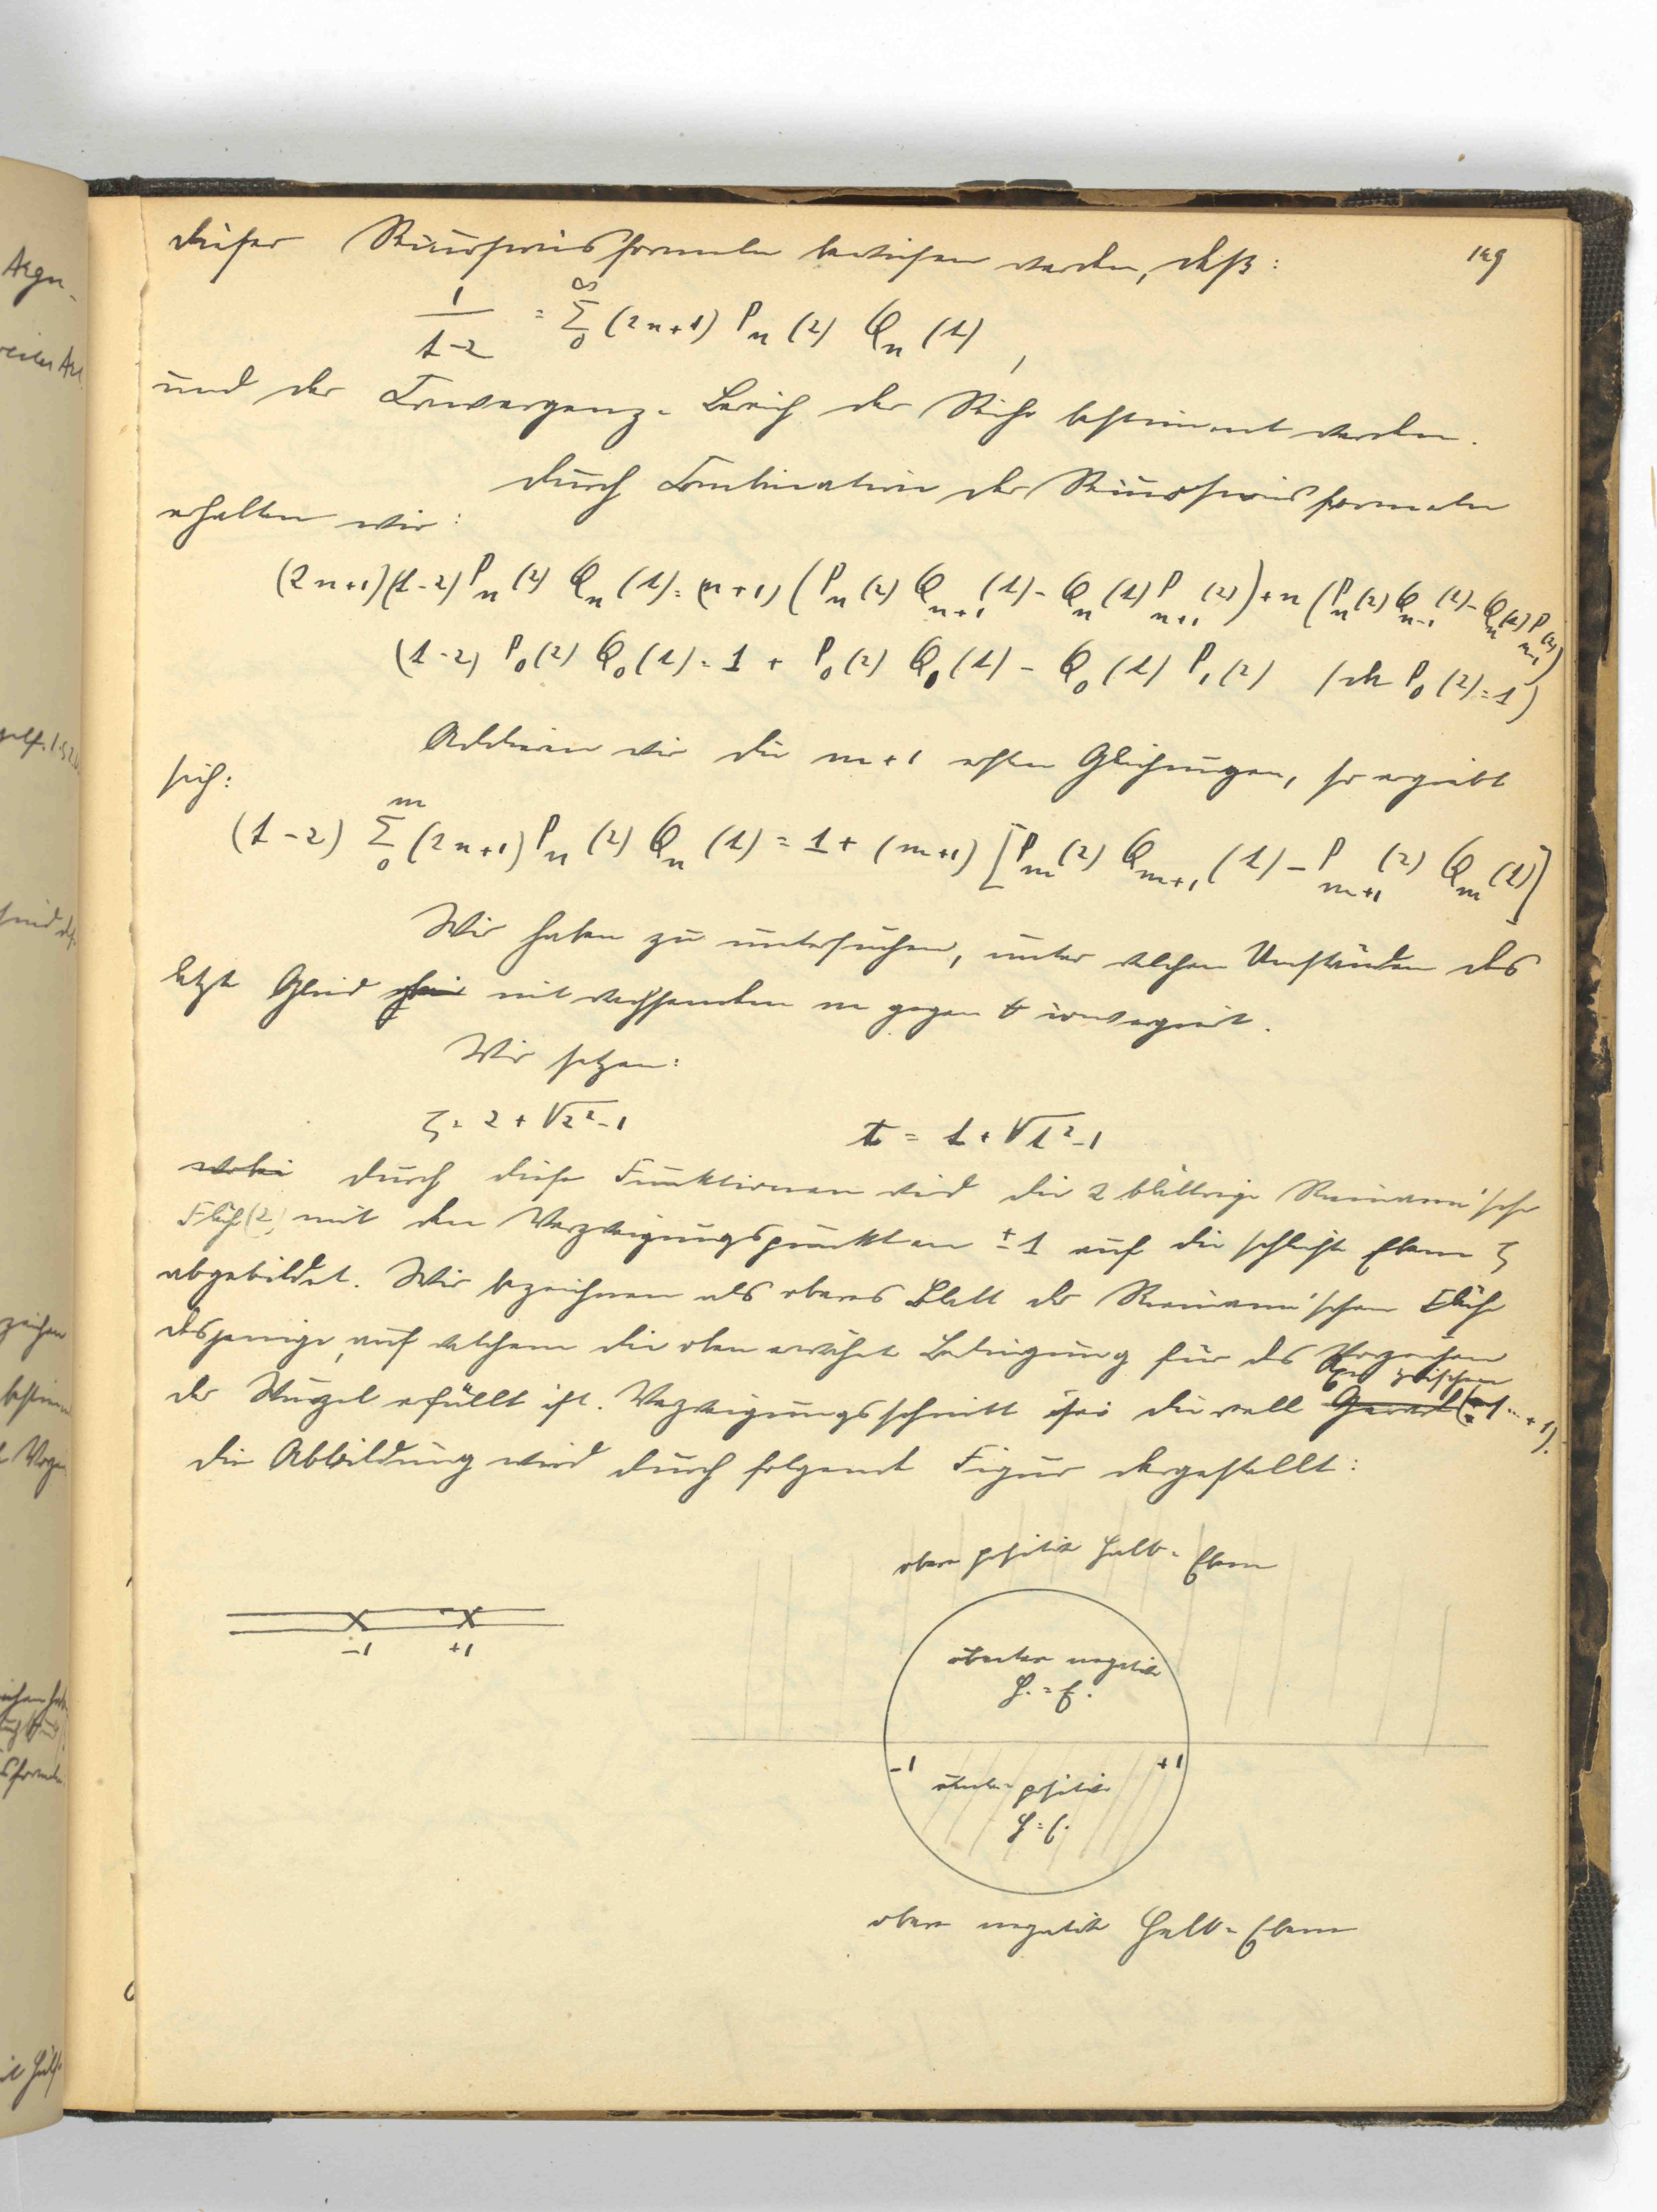 dieser Rekursionsformeln bewiesen werden, daß: 129
1/(t-z) = ∑_0^∞ (2n+1) P_n(z) Q_n(t),
und der Convergenz-Bereich der Reihe bestimmt werden.
Durch Combination der Rekursionsformeln
erhalten wir:
(2n+1)(t-z) P_n(z) Q_n(t) = (n+1) (P_n(z) Q_{n+1}(t) - Q_n(t) P_{n+1}(z)) + n (P_n(z) Q_{n-1}(t) - Q_n(t) P_{n-1}(z))
(t-z) P_0(z) Q_0(t) = 1 + P_0(z) Q_1(t) - Q_0(t) P_1(z) (da P_0(z) = 1)
Addieren wir die m+1 ersten Gleichungen, so ergiebt
sich:
(t-z) ∑_0^m (2n+1) P_n(z) Q_n(t) = 1 + (m+1) [P_m(z) Q_{m+1}(t) - P_{m+1}(z) Q_m(t)]
Wir haben zu untersuchen, unter welchen Umständen das
letzte Glied mit wachsendem m gegen 0 convergiert.
Wir setzen:
ζ = z + √(z²-1) t = t + √(t²-1)
wobei durch diese Funktionen wird die 2 blättrige Riemann'sche
Fläche (z) mit den Verzweigungspunkten ±1 auf die schlichte Ebene ζ
abgebildet. Wir bezeichnen als oberes Blatt der Riemann'schen Fläche
dasjenige, auf welchem die oben erwähnte Bedingung für das Vorzeichen
der Wurzel erfüllt ist. Verzweigungsschnitt sei die reelle Gerade Axe zwischen (-1...+1).
Die Abbildung wird durch folgende Figur dargestellt:
obere positive Halb-Ebene
-1 +1
untere negative
H.-E.
-1 +1
untere positive
H.-E.
obere negative Halb-Ebene